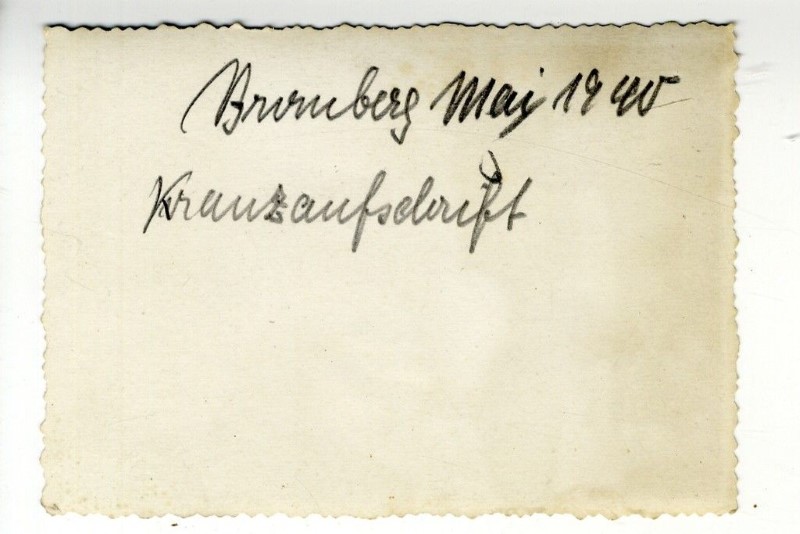 Bromberg Mai 1940
Kranzaufschrift